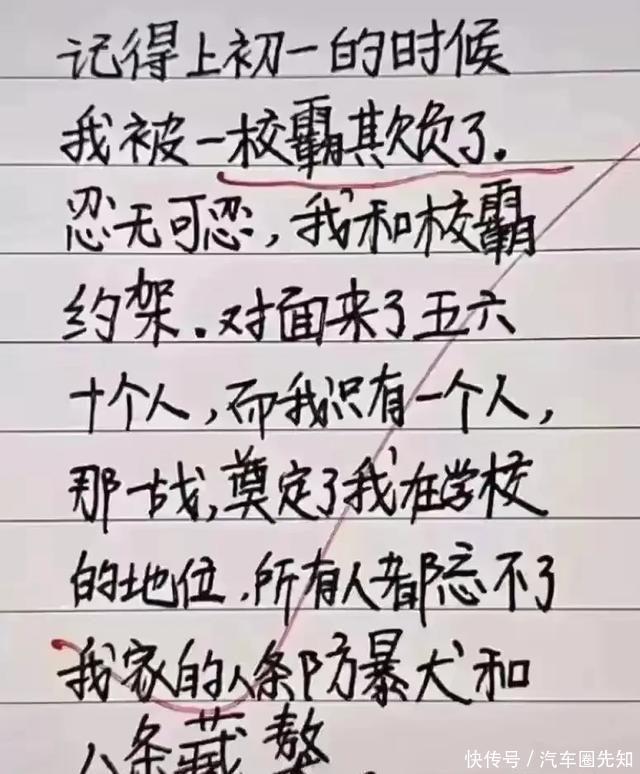 记得上初一的时候
我被一校霸欺负了.
忍无可忍,我和校霸
约架.对面来了五六
十个人,而我只有一个人,
那一战,奠定了我在学校
的地位,所有人都忘不了
我家的八条防暴犬和
八条藏獒.
快传号 / 汽车圈先知